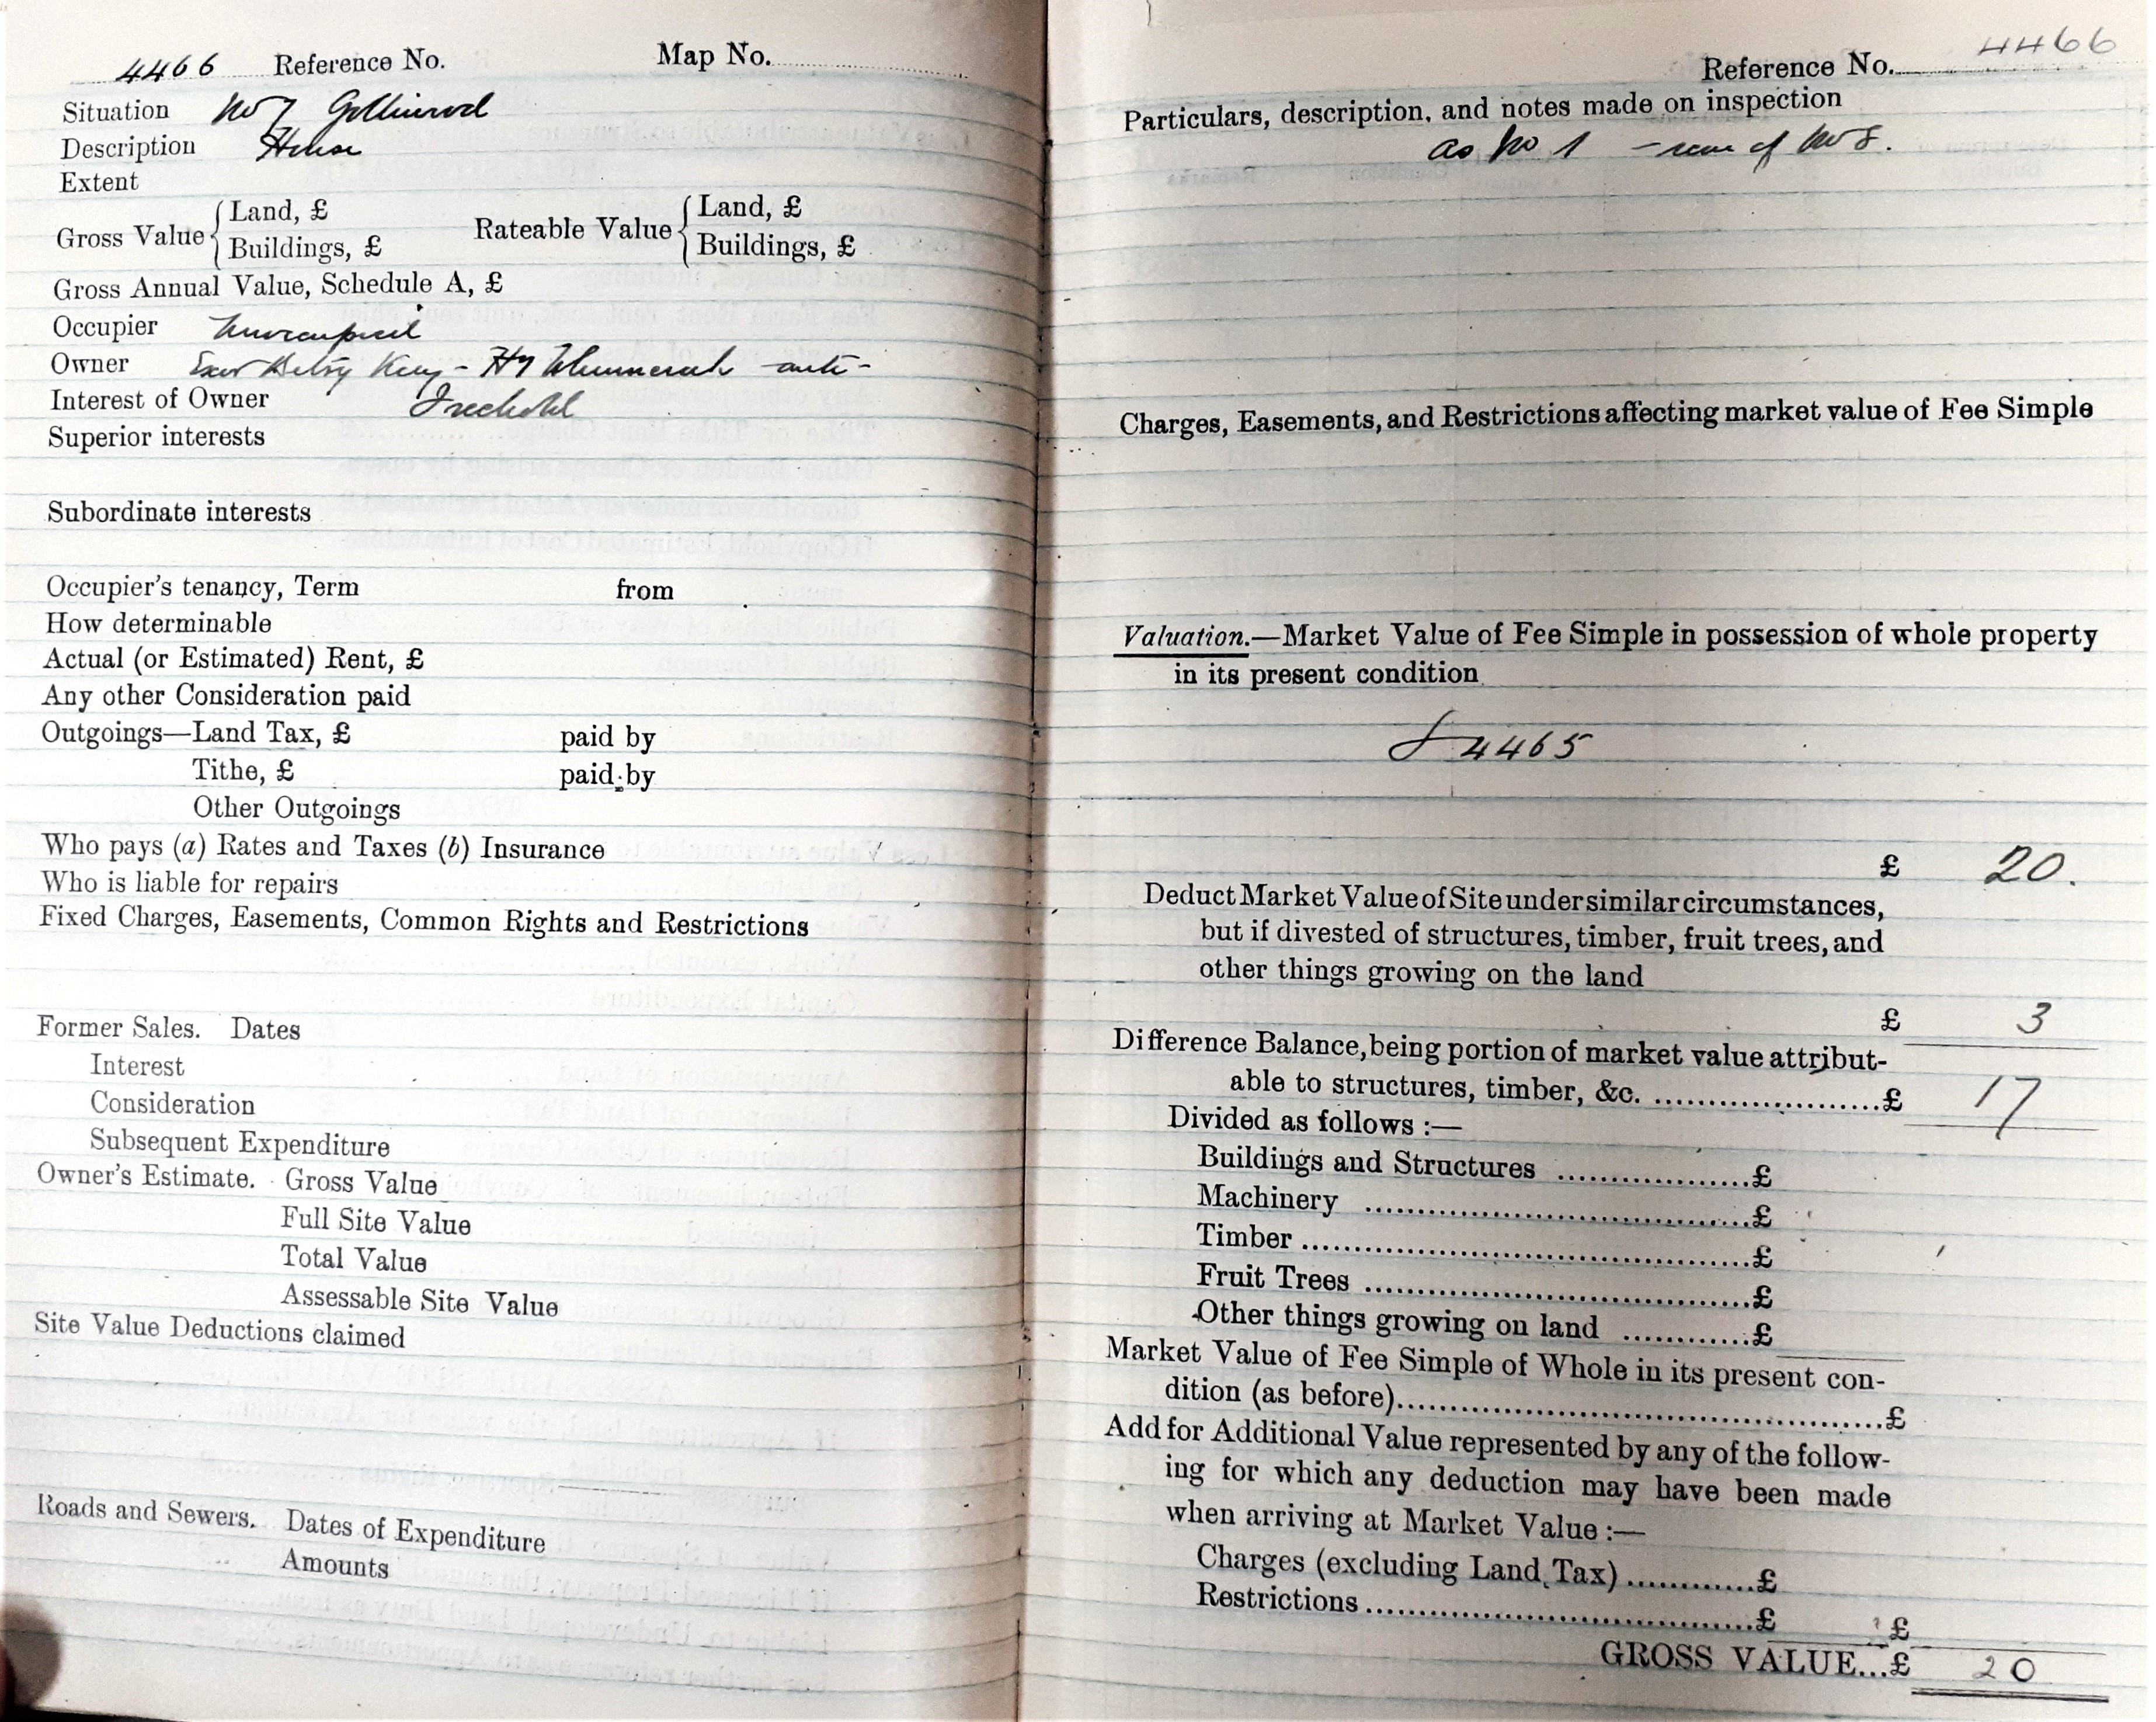 4466 Reference No. Map No.
Situation No 7 Gollinrod
Description House
Extent
Gross Value { Land, £ Rateable Value { Land, £
Buildings, £ Buildings, £
Gross Annual Value, Schedule A, £
Occupier Unoccupied
Owner Exor Betsy Kay - Hy Whinnerah
Interest of Owner Freehold
Superior interests
Subordinate interests
Occupier's tenancy, Term from
How determinable
Actual (or Estimated) Rent, £
Any other Consideration paid
Outgoings—Land Tax, £ paid by
Tithe, £ paid by
Other Outgoings
Who pays (a) Rates and Taxes (b) Insurance
Who is liable for repairs
Fixed Charges, Easements, Common Rights and Restrictions
Former Sales. Dates
Interest
Consideration
Subsequent Expenditure
Owner's Estimate. Gross Value
Full Site Value
Total Value
Assessable Site Value
Site Value Deductions claimed
Roads and Sewers. Dates of Expenditure
Amounts
Reference No. 4466
Particulars, description, and notes made on inspection
as No 1 - rear of No 8.
Charges, Easements, and Restrictions affecting market value of Fee Simple
Valuation.—Market Value of Fee Simple in possession of whole property
in its present condition
4465
£ 20.
Deduct Market Value of Site under similar circumstances,
but if divested of structures, timber, fruit trees, and
other things growing on the land
£ 3
Difference Balance, being portion of market value attribut-
able to structures, timber, &c. ....................£ 17
Divided as follows :—
Buildings and Structures ..................£
Machinery ..................................£
Timber ........................................£
Fruit Trees ..................................£
Other things growing on land ............£
Market Value of Fee Simple of Whole in its present con-
dition (as before)..............................................£
Add for Additional Value represented by any of the follow-
ing for which any deduction may have been made
when arriving at Market Value :—
Charges (excluding Land Tax) ............£
Restrictions ..................................£ £
GROSS VALUE...£ 20